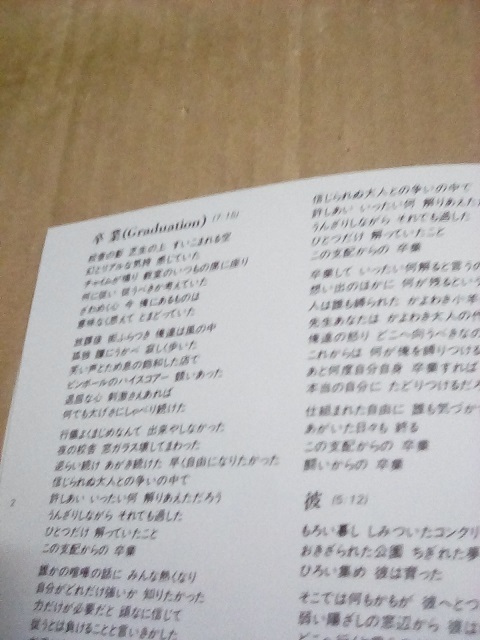 卒業(Graduation) (7:10)
校舎の影 芝生の上 すいこまれる空
幻とリアルな気持 感じていた
チャイムが鳴り 教室のいつもの席に座り
何に従い 従うべきか考えていた
ざわめく心 今 俺にあるものは
意味なく思えて とまどっていた
放課後 街ふらつき 俺達は風の中
孤独 瞳にうかべ 寂しく歩いた
笑い声とため息の飽和した店で
ピンボールのハイスコアー 競いあった
退屈な心 刺激さえあれば
何でも大げさにしゃべり続けた
行儀よくまじめなんて 出来やしなかった
夜の校舎 窓ガラス壊してまわった
逆らい続け あがき続けた 早く自由になりたかった
信じられぬ大人との争いの中で
許しあい いったい何 解りあえただろう
うんざりしながら それでも過した
ひとつだけ 解っていたこと
この支配からの 卒業
誰かの喧嘩の話に みんな熱くなり
自分がどれだけ強いか 知りたかった
力だけが必要だと 頑なに信じて
従うとは負けることと言いきかした
2
信じられぬ大人との争いの中で
許しあい いったい何 解りあえた
うんざりしながら それでも過した
ひとつだけ 解っていたこと
この支配からの 卒業
卒業して いったい何解ると言うの
想い出のほかに 何が残るという
人は誰も縛られた かよわき小羊
先生あなたは かよわき大人の代
俺達の怒り どこへ向うべきなの
これからは 何が俺を縛りつける
あと何度自分自身 卒業すれば
本当の自分に たどりつけるだろ
仕組まれた自由に 誰も気づか
あがいた日々も 終る
この支配からの 卒業
闘いからの 卒業
彼 (5:12)
もろい暮し しみついたコンクリ
おきざられた公園 ちぎれた夢
ひろい集め 彼は育った
そこでは何もかもが 彼へとつ
弱い陽ざしの窓辺から 彼は